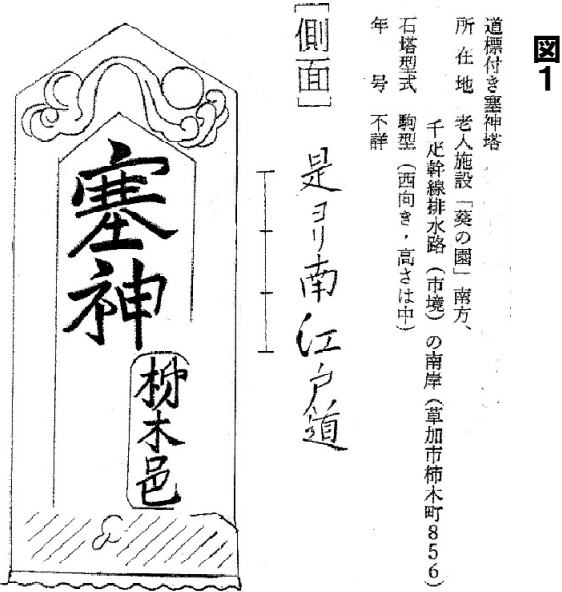 図1
道標付き塞神塔
所在地 老人施設「葵の園」南方、
千疋幹線排水路(市境)の南岸(草加市柿木町856)
石塔型式 駒型(西向き・高さは中)
年号 不詳
[側面]
是ヨリ南江戸道
塞神
柿木邑